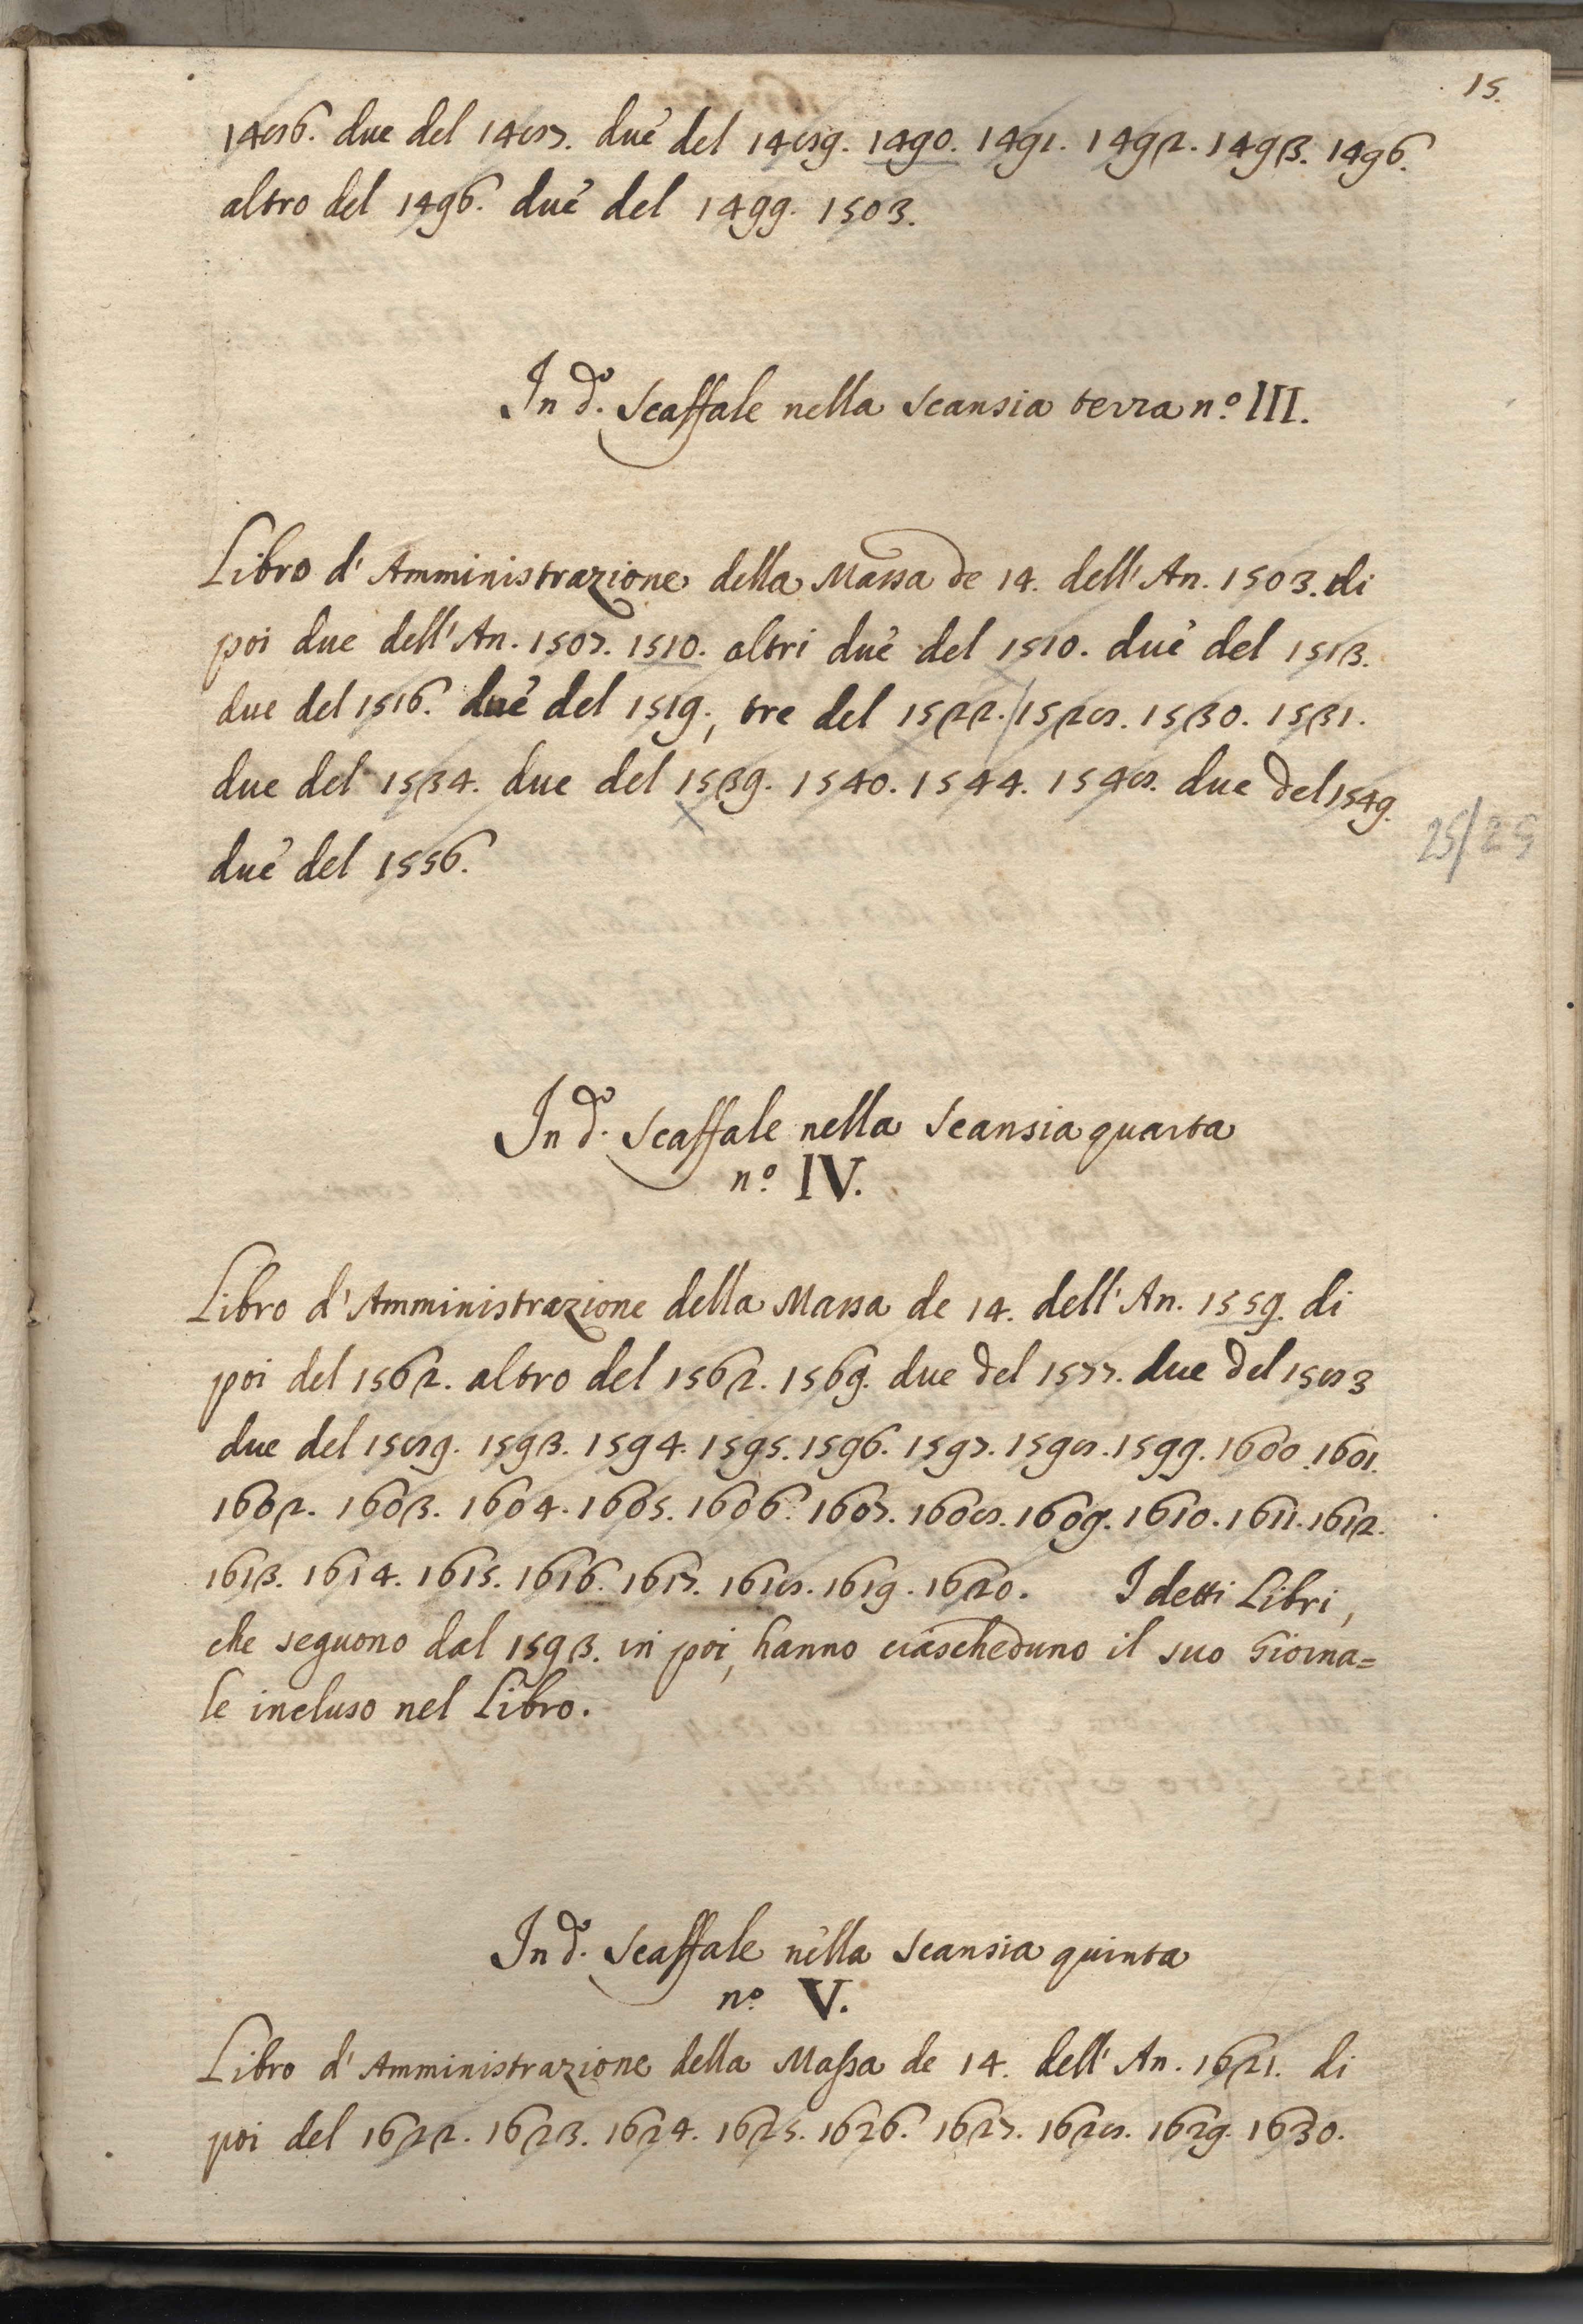 15.
1486. due del 1487. due del 1489. 1490. 1491. 1492. 1493. 1496.
altro del 1496. due del 1499. 1503.
In d.º Scaffale nella Scansia terza n.º III.
Libro d'Amministrazione della Massa de 14. dell'An. 1503. di
poi due dell'An. 1507. 1510. altri due del 1510. due del 1513.
due del 1516. due del 1519., tre del 1522. 1528. 1530. 1531.
due del 1534. due del 1539. 1540. 1544. 1548. due del 1549.
due del 1556.
25/25
In d.º Scaffale nella Scansia quarta
n.º IV.
Libro d'Amministrazione della Massa de 14. dell'An. 1559. di
poi del 1562. altro del 1562. 1569. due del 1577. due del 1583
due del 1589. 1593. 1594. 1595. 1596. 1597. 1598. 1599. 1600. 1601.
1602. 1603. 1604. 1605. 1606. 1607. 1608. 1609. 1610. 1611. 1612.
1613. 1614. 1615. 1616. 1617. 1618. 1619. 1620. I detti Libri,
che seguono dal 1593. in poi, hanno ciascheduno il suo Giorna=
le incluso nel Libro.
In d.º Scaffale nella Scansia quinta
n.º V.
Libro d'Amministrazione della Massa de 14. dell'An. 1621. di
poi del 1622. 1623. 1624. 1625. 1626. 1627. 1628. 1629. 1630.